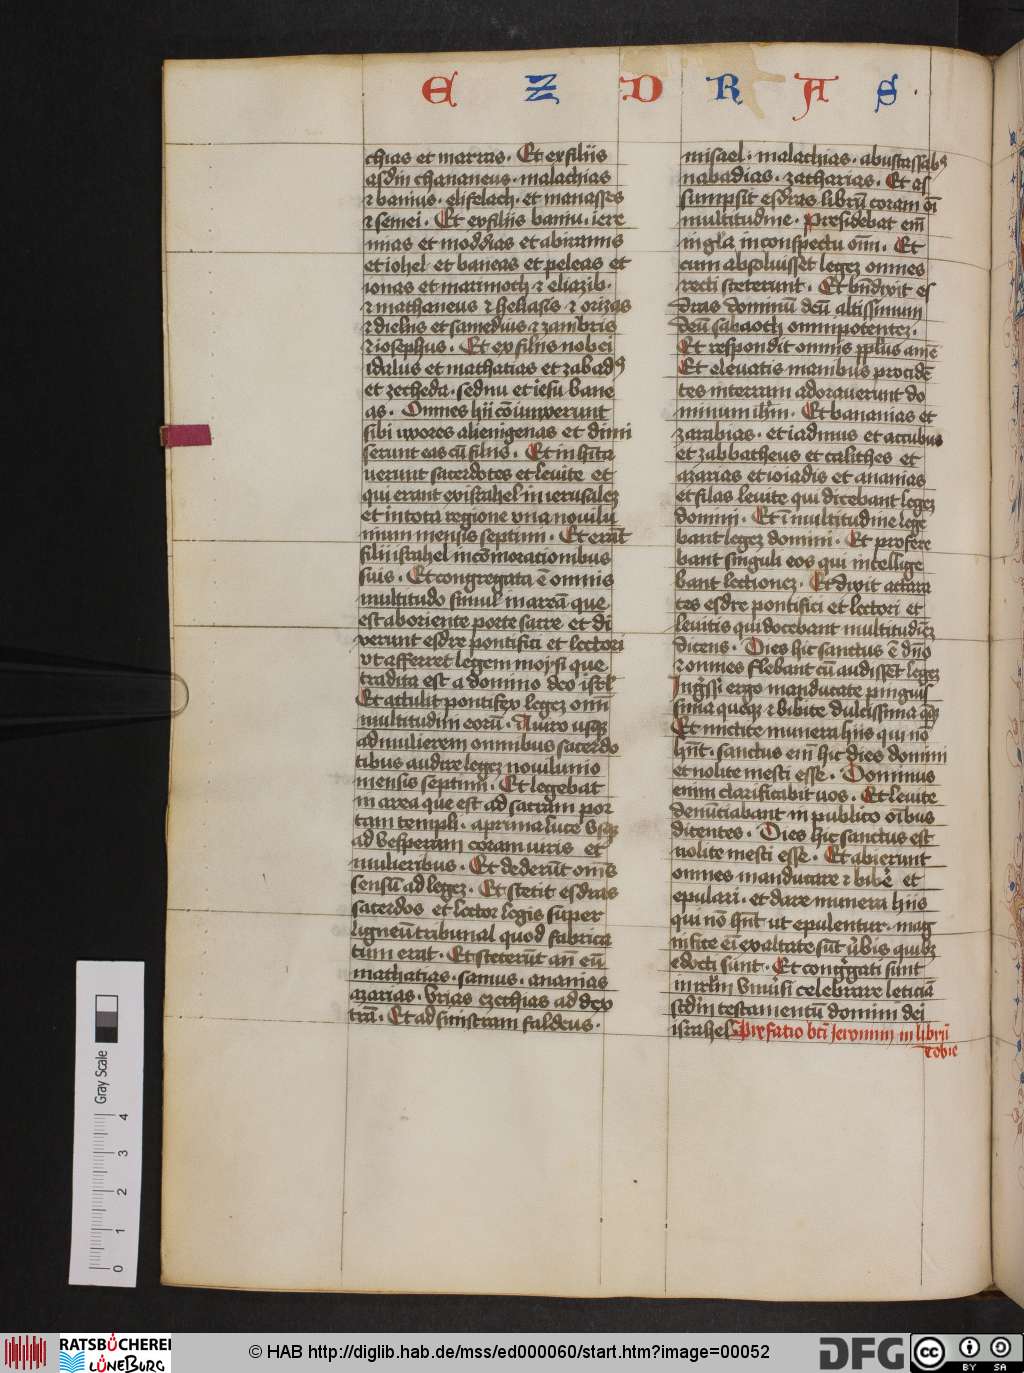 E Z D R A S
chias et marras. Et ex filiis
asdin chananeus. malachias
⁊ banius. elifelach. et manasses
⁊ semei. Et ex filiis baniu. iere
mias et moddias et abiramis
et iohel et baneas et peleas et
ionas et marimoth ⁊ eliazib.
⁊ mathaneus ⁊ heliasis ⁊ orizas
⁊ dielus et samedius ⁊ zambris
⁊ iosephus. Et ex filiis nobei
idalus et mathatias et zabadꝰ
et zecheda. sedmu et iesu bane
as. Omnes hii cōiunxerunt
sibi uxores alienigenas et dimi
serunt eas cū filiis. Et inhīta
uerunt sacerdotes et leuite et
qui erant ex israhel in ierusalez
et in tota regione vna nouilu
nium mensis septimi. Et erāt
filii israhel in cōmorationibus
suis. Et congregata ē omnis
multitudo simul in areā que
est ab oriente porte sacre et di
xerunt esdre pontifici et lectori
vt afferret legem moysi que
tradita est a domino deo isrl
Et attulit pontifex legez omī
multitudini eorū. A uiro usqꝫ
ad mulierem omnibus sacerdo
tibus audire legez nouilunio
mensis septimi. Et legebat
in area que est ad sacram por
tam templi. a prima luce vsqꝫ
ad vesperam coram uiris et
mulieribus. Et dederūt omēs
sensū ad legez. Et stetit esdras
sacerdos et lector legis super
ligneū tribunal quod fabrica
tum erat. Et steterūt an̄ eū
mathatias. samus. ananias
azarias. Vrias ezechias ad dex
trā. Et ad sinistram faldeus.
misael. malachias. abustassabꝰ
nabadias. zacharias. Et as
sumpsit esdras librū coram oī
multitudine. Presidebat em̄
in gl̄a in conspectu om̄i. Et
cum absoluisset legez omnes
recti steterunt. Et bn̄dixit es
dras dominū deū altissimum
deū sabaoth omnipotentez.
Et respondit omnis pplus amē
Et eleuatis manibus prociden̄
tes in terram adorauerunt do
minum ihr̄m. Et bananias et
zarabias. et iadmus et accubus
et zabbatheus et calithes et
azarias et ioiadis et ananias
et filas leuite qui dicebant legez
domini. Et ī multitudine lege
bant legez domini. Et prefere
bant singuli eos qui intellige
bant lectionez. Et dixit attara
tes esdre pontifici et lectori et
leuitis qui docebant multitudīez
dicens. Dies hic sanctus ē dn̄o
⁊ omnes flebant cū audissēt legez
Ingr̄ssi ergo manducate pinguis
sima queqꝫ ⁊ bibite dulcissima qqꝫ
Et mictite munera hiis qui nō
hn̄t. sanctus em̄ hic dies domini
et nolite mesti esse. Dominus
enim clarificabit uos. Et leuite
denūciabant in publico oībus
dicentes. Dies hic sanctus est
nolite mesti esse. Et abierunt
omnes manducare ⁊ bibē et
epulari. et dare munera hiis
qui nō hn̄t ut epulentur. mag
nifice eī exaltate sūt ūbis quibꝫ
edocti sunt. Et congr̄gati sunt
in irl̄m vniūsi celebrare leticiā
scd̄m testamentū domini dei
israhel. Prefatio bti Jeronimi in librū
Tobie
Gray Scale
0 1 2 3 4
RATSBÜCHEREI
LÜNEBURG
© HAB http://diglib.hab.de/mss/ed000060/start.htm?image=00052
DFG
cc BY SA